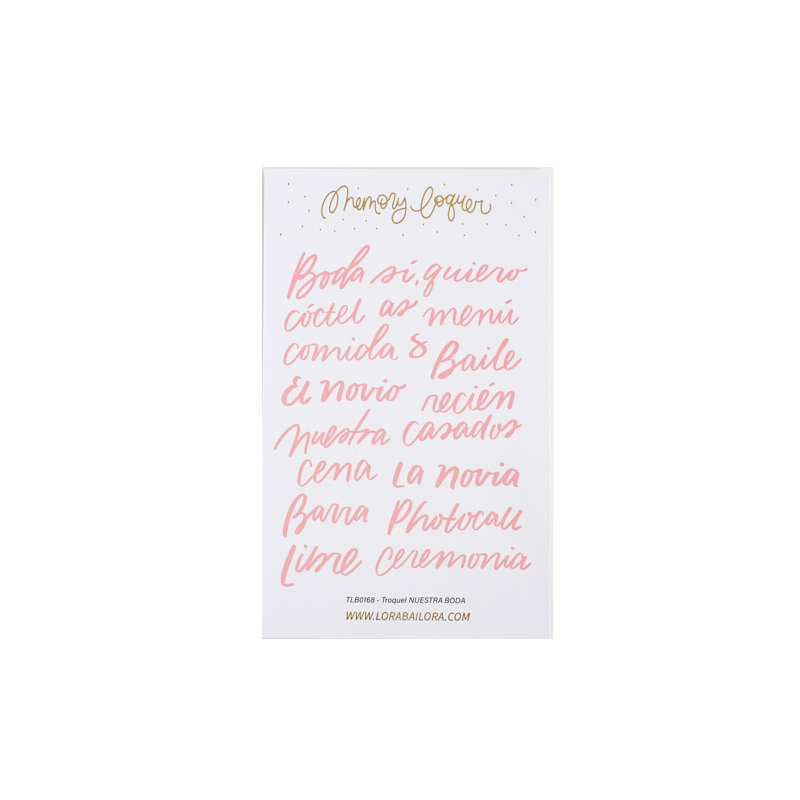 Memory loquer
Boda sí, quiero
cóctel as menú
comida & Baile
El novio recién
nuestra casados
cena La novia
Barra Photocall
Libre ceremonia
TLB0168 - Troquel NUESTRA BODA
WWW.LORABAILORA.COM